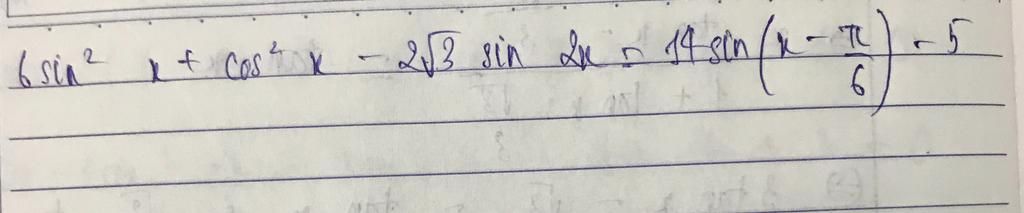 6 sin² x + cos² x - 2√3 sin 2x = 14 sin(x - π/6) - 5